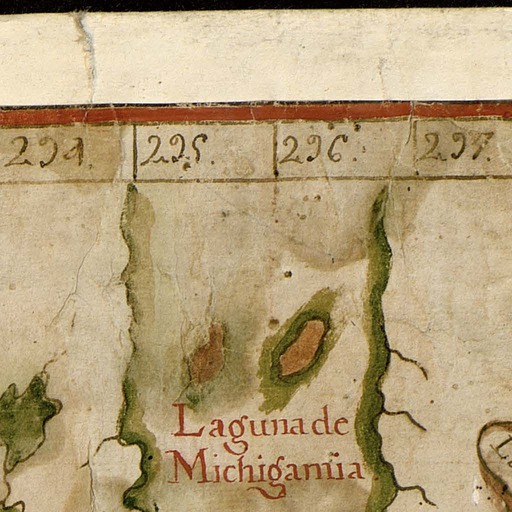 294. 295. 296. 297.
Laguna de
Michigamia